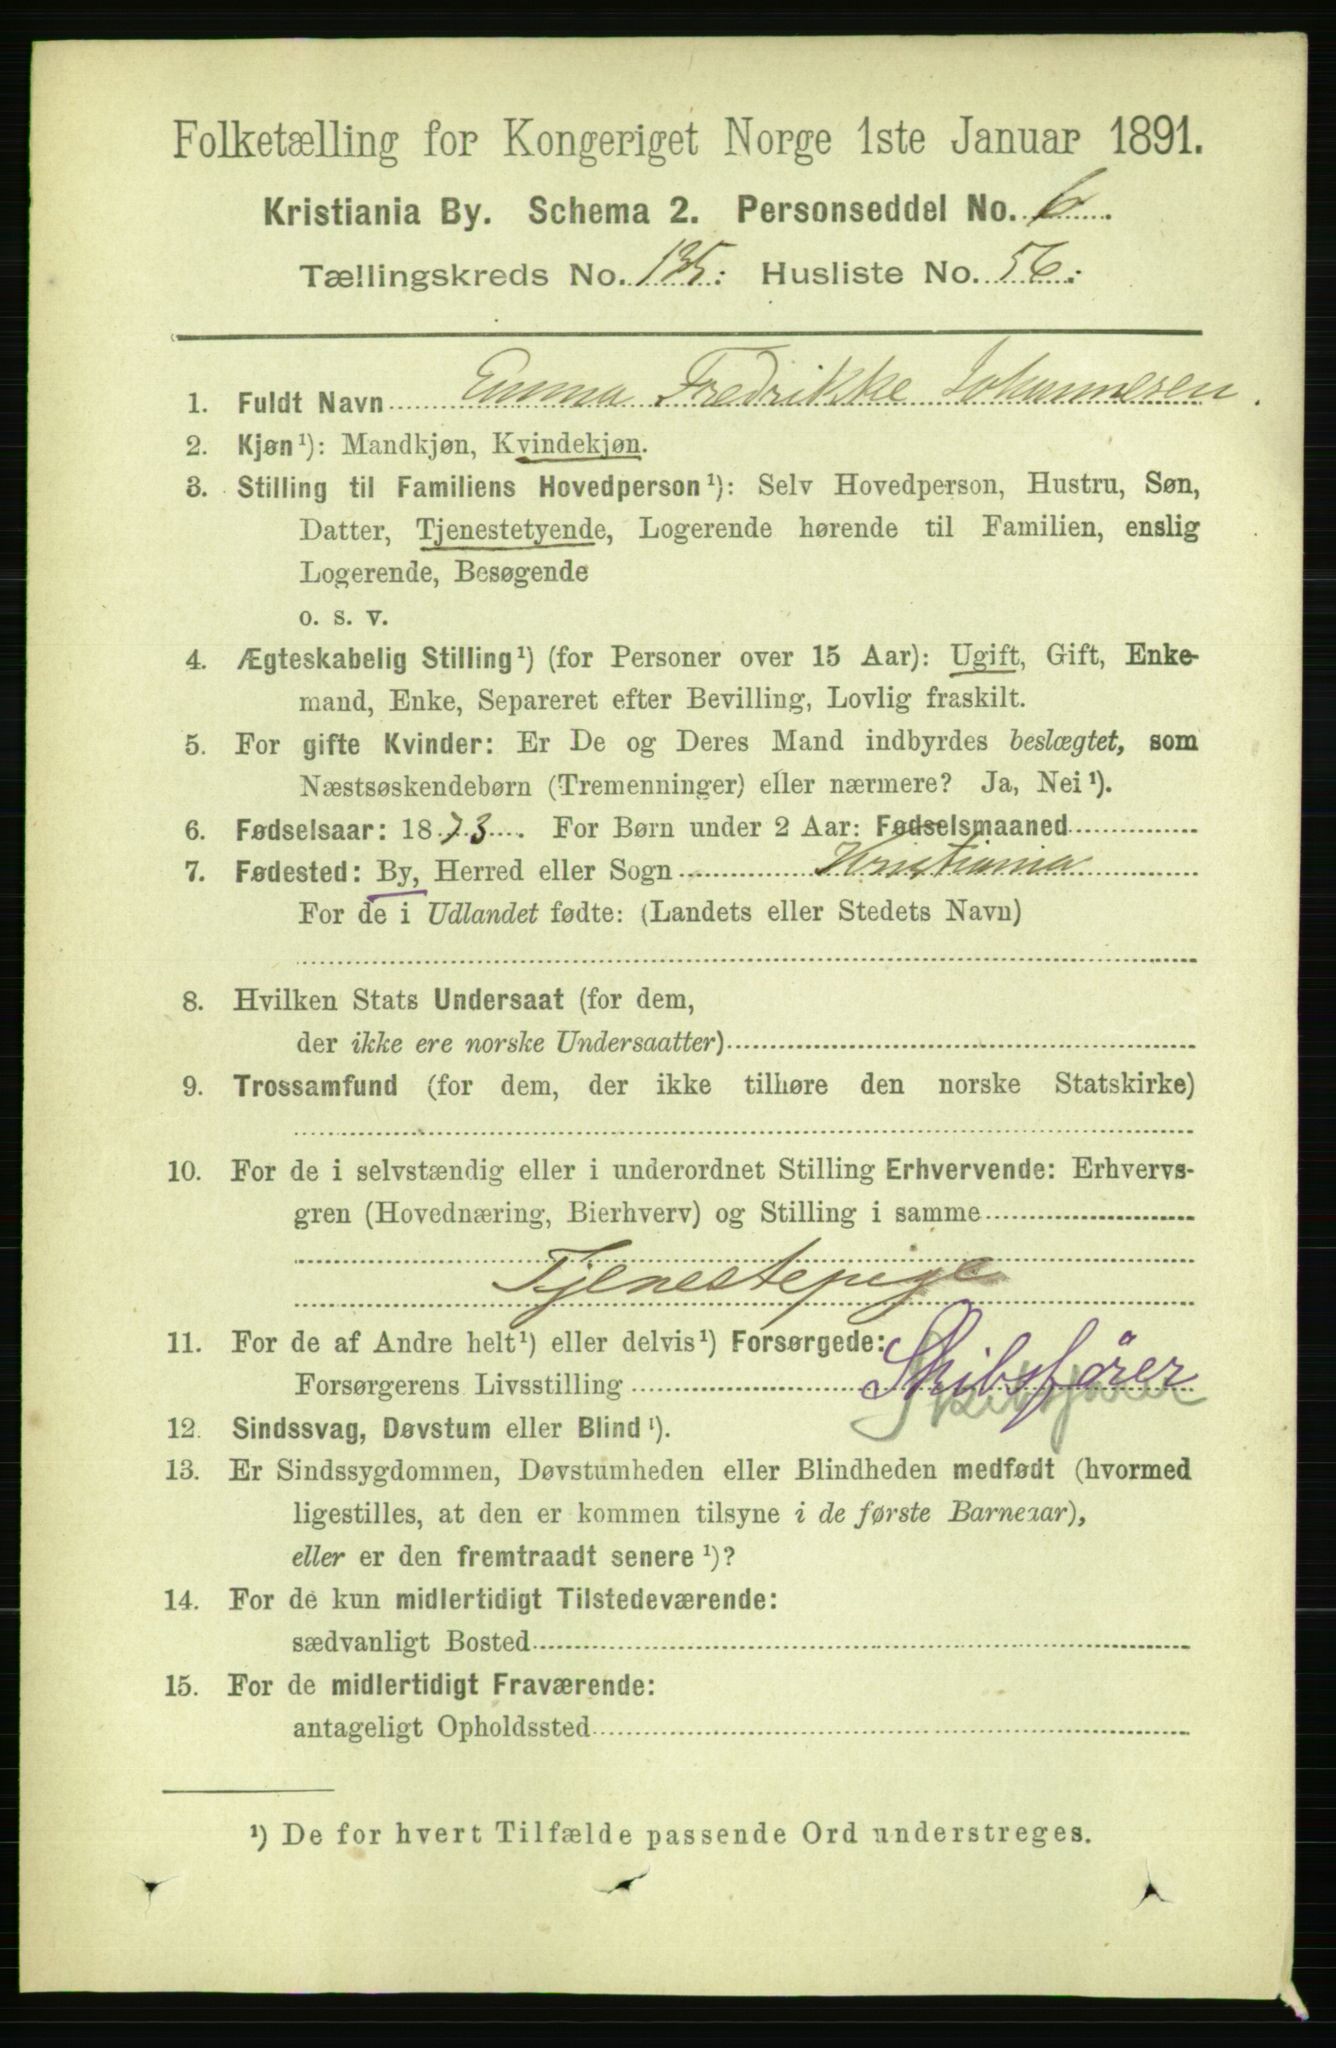 Folketælling for Kongeriget Norge 1ste Januar 1891.
Kristiania By. Schema 2. Personseddel No. 6.
Tællingskreds No. 135: Husliste No. 56:
1. Fuldt Navn Emma Fredrikke Johannesen.
2. Kjøn¹): Mandkjøn, Kvindekjøn.
3. Stilling til Familiens Hovedperson¹): Selv Hovedperson, Hustru, Søn,
Datter, Tjenestetyende, Logerende hørende til Familien, enslig
Logerende, Besøgende
o. s. v.
4. Ægteskabelig Stilling¹) (for Personer over 15 Aar): Ugift, Gift, Enke-
mand, Enke, Separeret efter Bevilling, Lovlig fraskilt.
5. For gifte Kvinder: Er De og Deres Mand indbyrdes beslægtet, som
Næstsøskendebørn (Tremenninger) eller nærmere? Ja, Nei¹).
6. Fødselsaar: 1873. For Børn under 2 Aar: Fødselsmaaned
7. Fødested: By, Herred eller Sogn Kristiania
For de i Udlandet fødte: (Landets eller Stedets Navn)
8. Hvilken Stats Undersaat (for dem,
der ikke ere norske Undersaatter)
9. Trossamfund (for dem, der ikke tilhøre den norske Statskirke)
10. For de i selvstændig eller i underordnet Stilling Erhvervende: Erhvervs-
gren (Hovednæring, Bierhverv) og Stilling i samme
Tjenestepige
11. For de af Andre helt¹) eller delvis¹) Forsørgede:
Forsørgerens Livsstilling Skibsfører
Skibsfører
12. Sindssvag, Døvstum eller Blind¹).
13. Er Sindssygdommen, Døvstumheden eller Blindheden medfødt (hvormed
ligestilles, at den er kommen tilsyne i de første Barneaar),
eller er den fremtraadt senere¹)?
14. For de kun midlertidigt Tilstedeværende:
sædvanligt Bosted
15. For de midlertidigt Fraværende:
antageligt Opholdssted
¹) De for hvert Tilfælde passende Ord understreges.